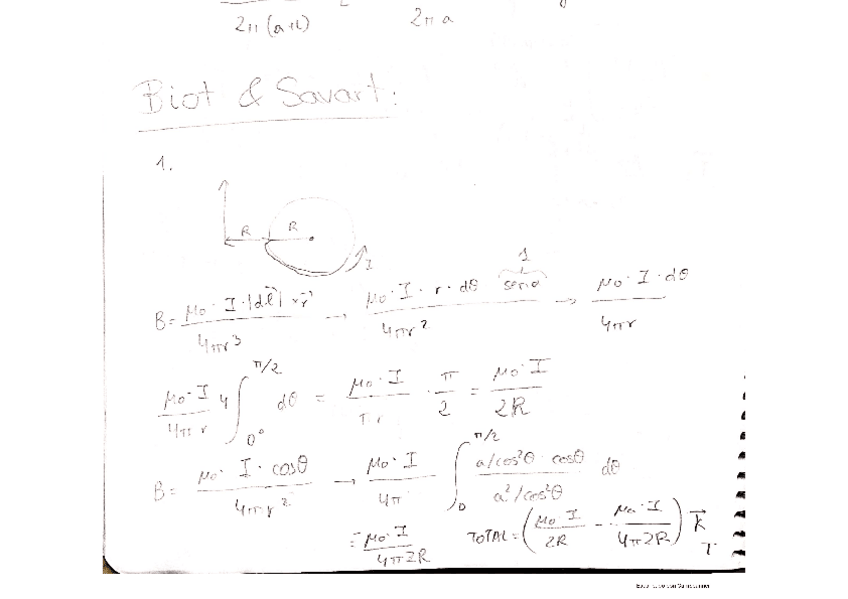 2π(a+L) 2πa
Biot & Savart:
1.
R R
I
1
B = μ₀·I·|dl⃗|×r⃗ / 4πr³ → μ₀·I·r·dθ senθ / 4πr² → μ₀·I·dθ / 4πr
μ₀·I / 4πr 4 ∫₀°^π/2 dθ = μ₀·I / πr · π/2 = μ₀·I / 2R
B = μ₀·I·cosθ / 4πr² → μ₀·I / 4π ∫₀^π/2 a/cos²θ·cosθ / a²/cos²θ dθ
= μ₀·I / 4π2R TOTAL = (μ₀·I / 2R − μ₀·I / 4π2R) k⃗ T